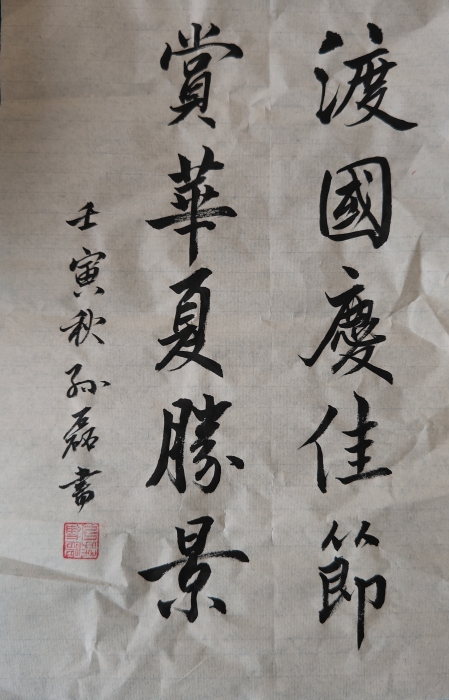 渡國慶佳節
賞華夏勝景
壬寅秋孙磊书